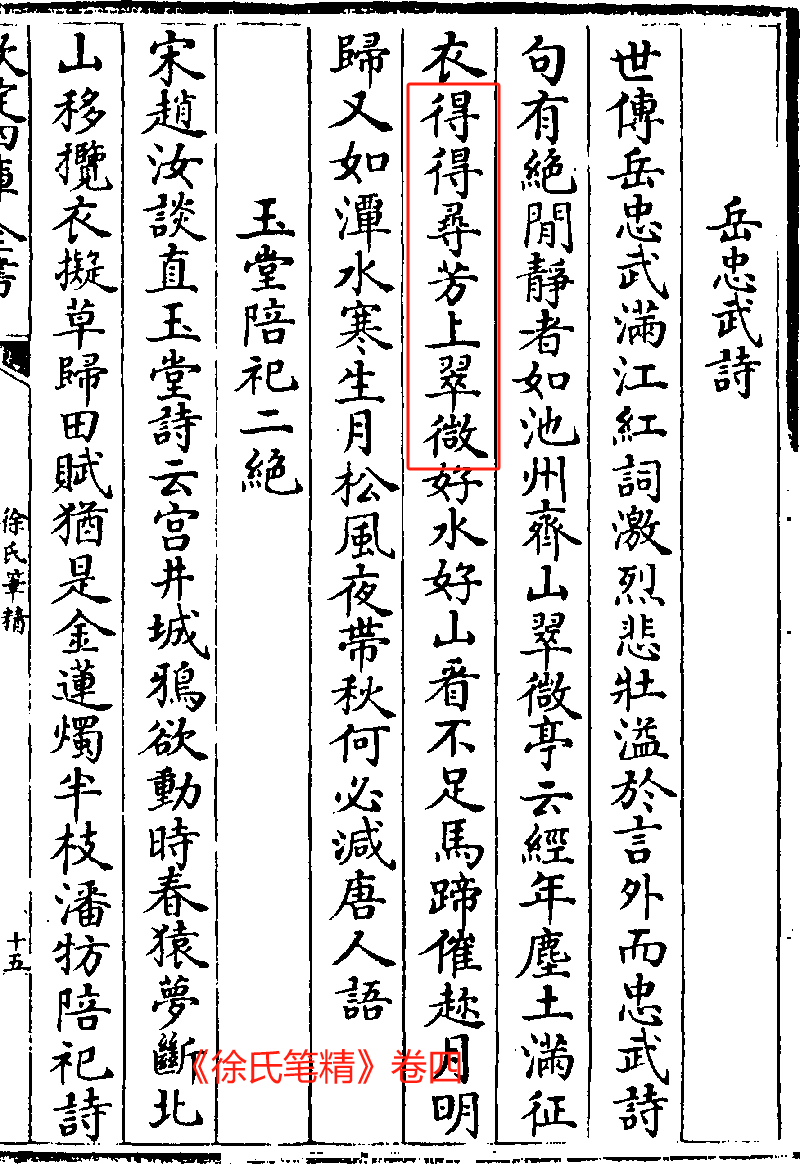 岳忠武詩
世傳岳忠武滿江紅詞激烈悲壯溢於言外而忠武詩
句有絕閒靜者如池州齊山翠微亭云經年塵土滿征
衣得得尋芳上翠微好水好山看不足馬蹄催趂月明
歸又如潭水寒生月松風夜帶秋何必減唐人語
玉堂陪祀二絕
宋趙汝談直玉堂詩云宫井城鴉欲動時春猿夢斷北
山移攬衣擬草歸田賦猶是金蓮燭半枝潘牥陪祀詩
欽定四庫全書
徐氏筆精
十五
《徐氏笔精》卷四